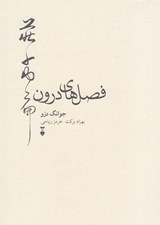 莊子内篇
فصل‌های درون
جوانگ دزو
بهزاد برکت  هرمز ریاحی